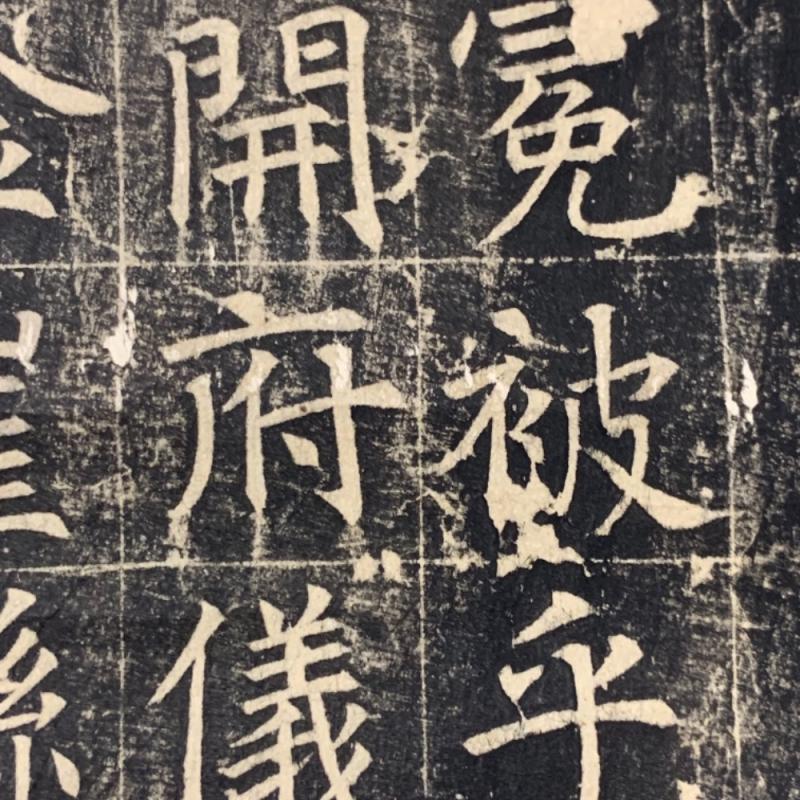 冕被乎
開府儀